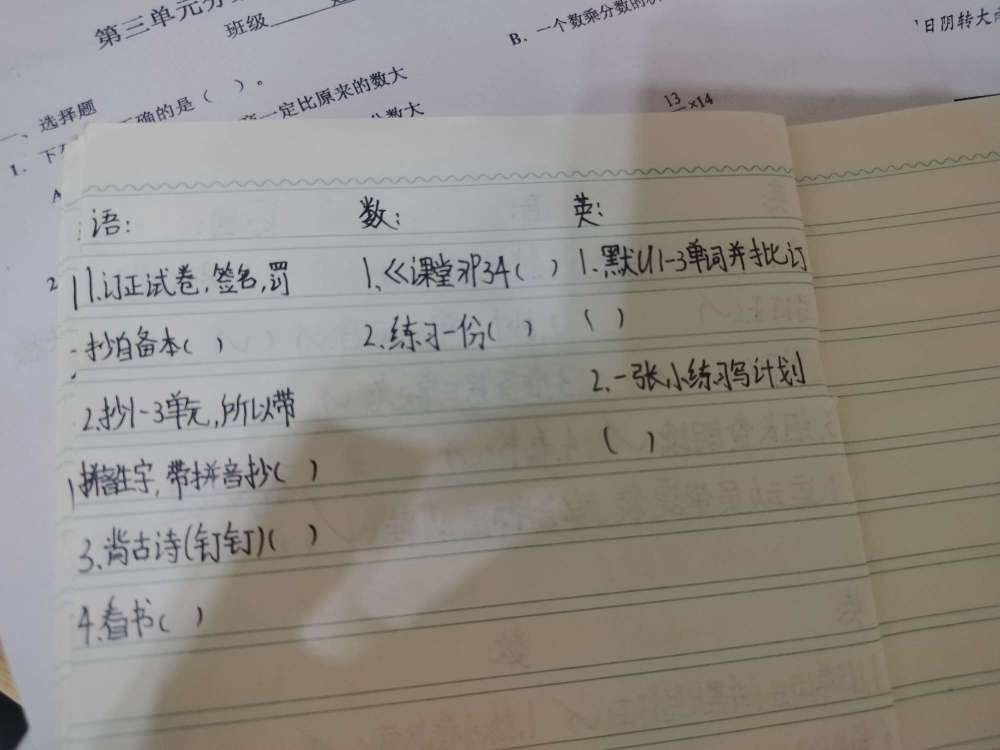 第三单元分
班级
B. 一个数乘分数的
日阴转大
一、选择题
确的是（ ）。
一定比原来的数大
分数大
1. 下
A
13/×14
语：
数：
英：
1.订正试卷,签名,罚
抄自备本( )
2.抄1-3单元,所以带
拼音生字,带拼音抄( )
3.背古诗(钉钉)( )
4.看书( )
1.《课堂》P34( )
2.练习一份( )
1.默U1-3单词并批订
( )
2.一张小练习写计划
( )